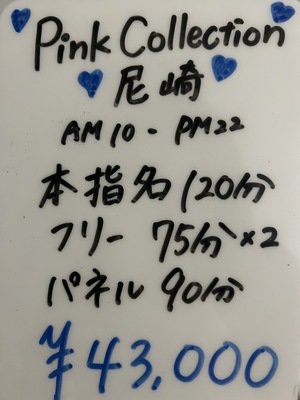 Pink Collection
尼崎
AM10-PM22
本指名120分
フリー 75分×2
パネル 90分
¥43,000